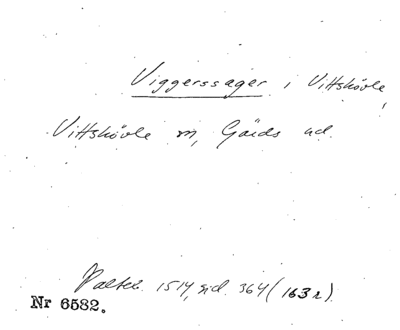 Viggerssager i Vittskövle,
Vittskövle sn, Gärds hd.
Palteb. 1514, sid. 364 (163 r).
Nr 6582.